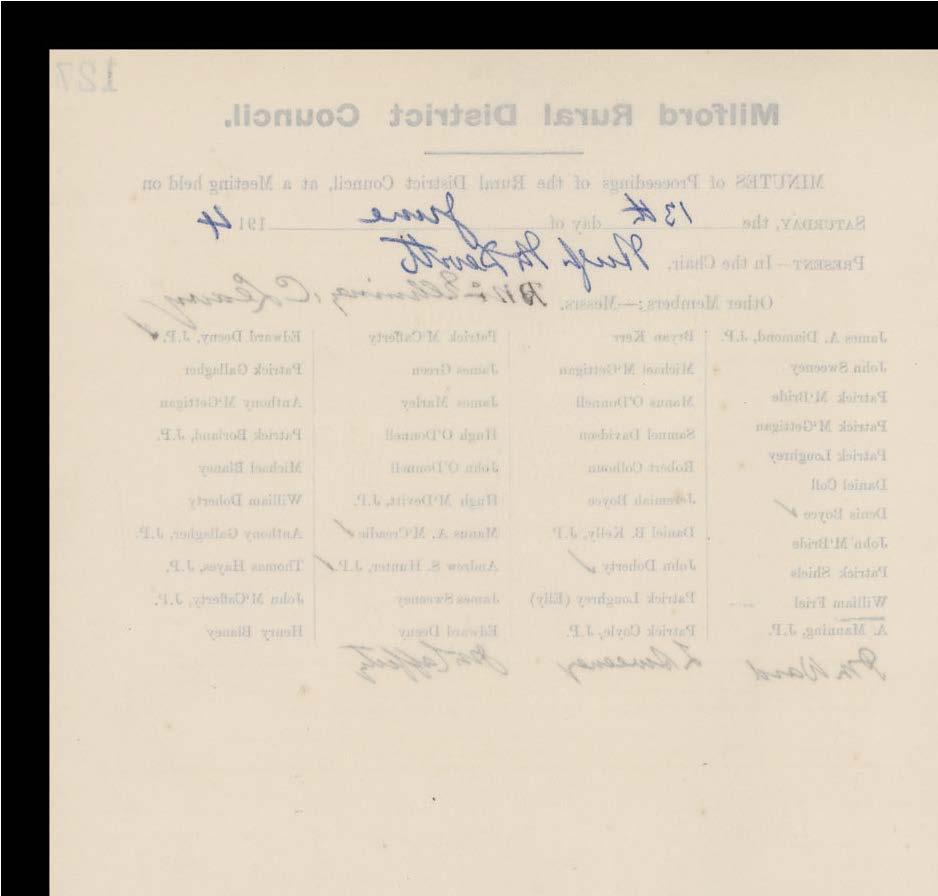 127
Milford Rural District Council.
MINUTES of Proceedings of the Rural District Council, at a Meeting held on
SATURDAY, the 13th day of June 1914
PRESENT—In the Chair, Hugh McDevitt
Other Members:—Messrs.
James A. Diamond, J.P. Bryan Kerr Patrick M'Cafferty Edward Deeny, J.P. ✓
John Sweeney Michael M'Gettigan James Green Patrick Gallagher
Patrick M'Bride Manus O'Donnell James Marley Anthony M'Gettigan
Patrick M'Gettigan Samuel Davidson Hugh O'Donnell Patrick Borland, J.P.
Patrick Loughrey Robert Colhoun John O'Donnell Michael Blaney
Daniel Coll Jeremiah Boyce Hugh M'Devitt, J.P. William Doherty
Denis Boyce ✓ Daniel B. Kelly, J.P. Manus A. M'Creadie ✓ Anthony Gallagher, J.P.
John M'Bride John Doherty ✓ Andrew S. Hunter, J.P. ✓ Thomas Hayes, J.P.
Patrick Shiels Patrick Loughrey (Elly) James Sweeney John M'Cafferty, J.P.
William Friel Patrick Coyle, J.P. Edward Deeny Henry Blaney
A. Manning, J.P.
Ward Sweeney